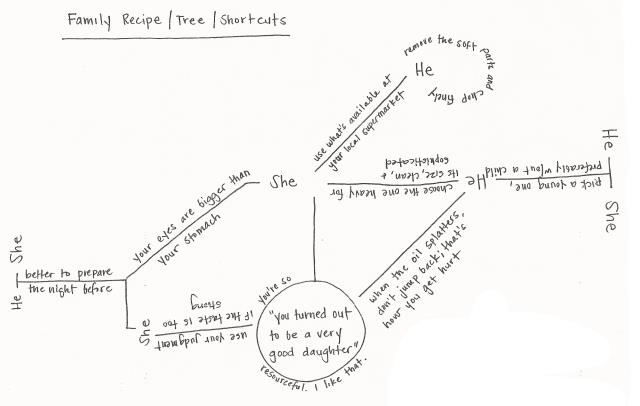 Family Recipe / Tree / Shortcuts
remove the soft parts and chop finely
He
use what's available at
your local supermarket
He
She
pick a young one,
preferably w/out a child
He
choose the one heavy for
its size, clean, +
sophisticated
She
your eyes are bigger than
your stomach
She
He
better to prepare
the night before
She
use your judgment
if the taste is too
strong
when the oil splatters,
don't jump back; that's
how you get hurt
you're so
"you turned out
to be a very
good daughter"
resourceful. I like that.